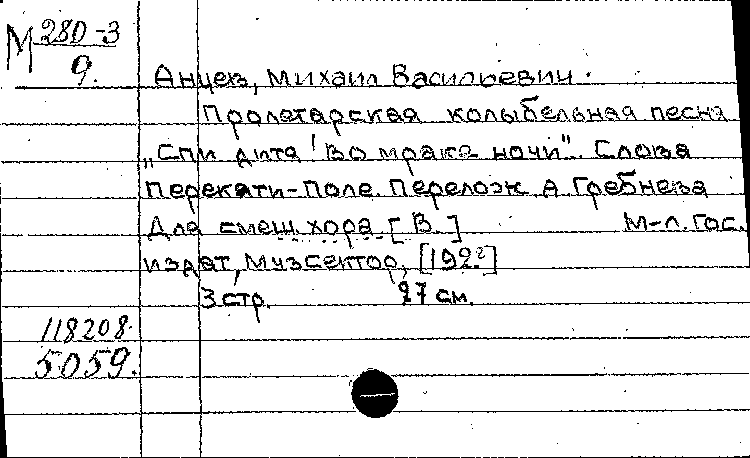 М 280-3
9.
Анцев, Михаил Васильевич.
Пролетарская колыбельная песня
„Спи дитя во мраке ночи". Слова
Перекати-Поле. Перелож. А. Гребнева
Для смеш. хора. [В.] М-л. Гос.
издат, Музсектор, [192?]
3 стр. 27 см.
118208.
5059.